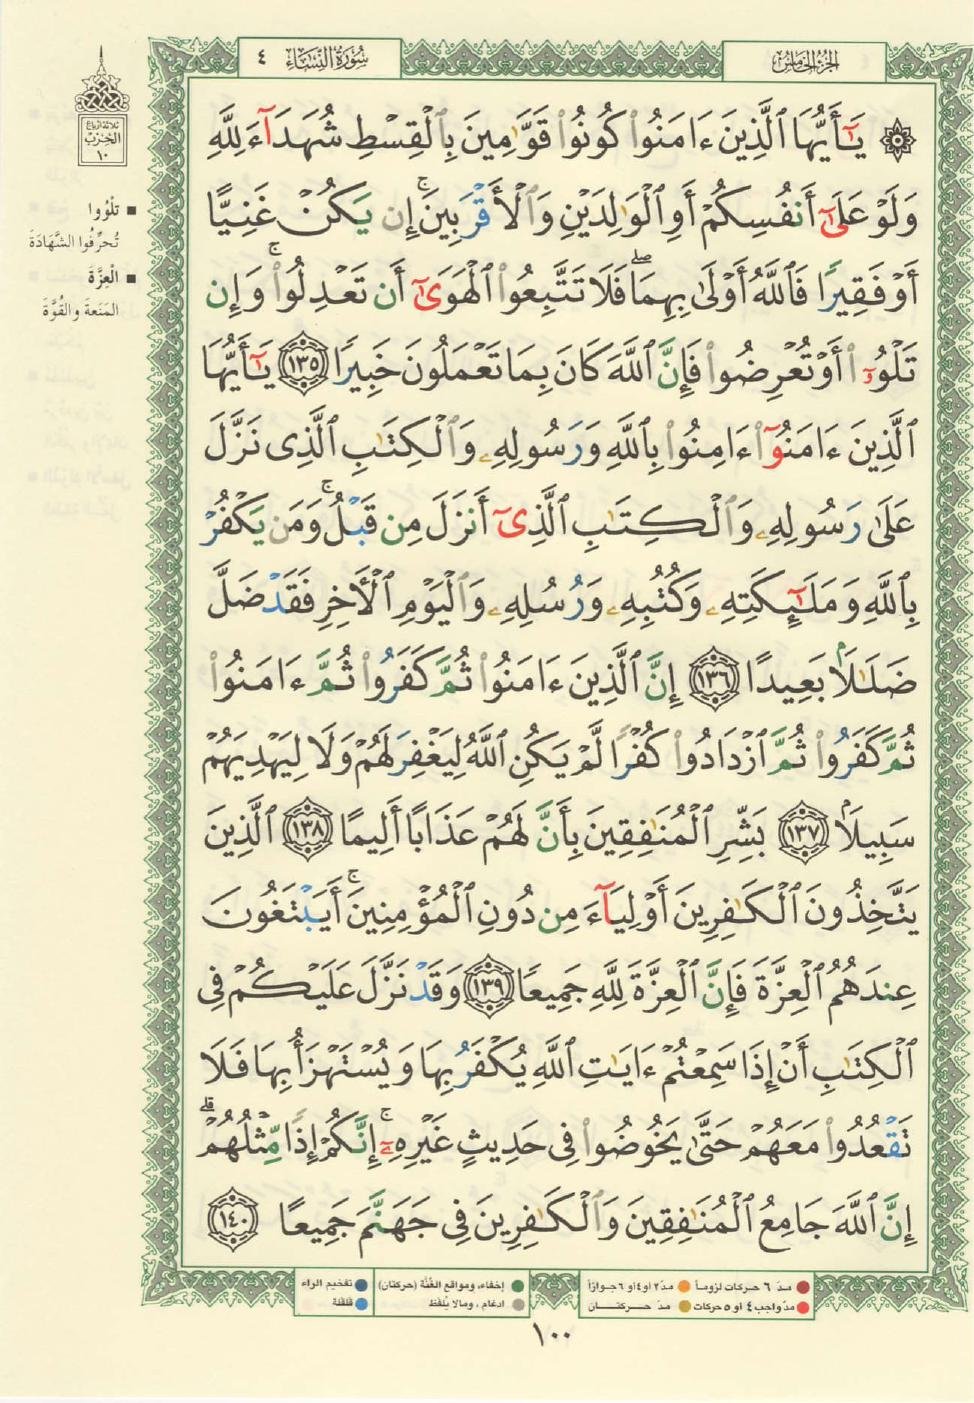 سُورَةُ النِّسَاءِ ٤
الجُزْءُ الخَامِسُ
ثلاثة أرباع
الحِزْبُ
١٠
۞ يَٰٓأَيُّهَا ٱلَّذِينَ ءَامَنُوا۟ كُونُوا۟ قَوَّٰمِينَ بِٱلْقِسْطِ شُهَدَآءَ لِلَّهِ
وَلَوْ عَلَىٰٓ أَنفُسِكُمْ أَوِ ٱلْوَٰلِدَيْنِ وَٱلْأَقْرَبِينَ ۚ إِن يَكُنْ غَنِيًّا
أَوْ فَقِيرًا فَٱللَّهُ أَوْلَىٰ بِهِمَا ۖ فَلَا تَتَّبِعُوا۟ ٱلْهَوَىٰٓ أَن تَعْدِلُوا۟ ۚ وَإِن
تَلْوُۥٓا۟ أَوْ تُعْرِضُوا۟ فَإِنَّ ٱللَّهَ كَانَ بِمَا تَعْمَلُونَ خَبِيرًا ١٣٥ يَٰٓأَيُّهَا
ٱلَّذِينَ ءَامَنُوٓا۟ ءَامِنُوا۟ بِٱللَّهِ وَرَسُولِهِۦ وَٱلْكِتَٰبِ ٱلَّذِى نَزَّلَ
عَلَىٰ رَسُولِهِۦ وَٱلْكِتَٰبِ ٱلَّذِىٓ أَنزَلَ مِن قَبْلُ ۚ وَمَن يَكْفُرْ
بِٱللَّهِ وَمَلَٰٓئِكَتِهِۦ وَكُتُبِهِۦ وَرُسُلِهِۦ وَٱلْيَوْمِ ٱلْأَخِرِ فَقَدْ ضَلَّ
ضَلَٰلًۢا بَعِيدًا ١٣٦ إِنَّ ٱلَّذِينَ ءَامَنُوا۟ ثُمَّ كَفَرُوا۟ ثُمَّ ءَامَنُوا۟
ثُمَّ كَفَرُوا۟ ثُمَّ ٱزْدَادُوا۟ كُفْرًا لَّمْ يَكُنِ ٱللَّهُ لِيَغْفِرَ لَهُمْ وَلَا لِيَهْدِيَهُمْ
سَبِيلًۢا ١٣٧ بَشِّرِ ٱلْمُنَٰفِقِينَ بِأَنَّ لَهُمْ عَذَابًا أَلِيمًا ١٣٨ ٱلَّذِينَ
يَتَّخِذُونَ ٱلْكَٰفِرِينَ أَوْلِيَآءَ مِن دُونِ ٱلْمُؤْمِنِينَ ۚ أَيَبْتَغُونَ
عِندَهُمُ ٱلْعِزَّةَ فَإِنَّ ٱلْعِزَّةَ لِلَّهِ جَمِيعًا ١٣٩ وَقَدْ نَزَّلَ عَلَيْكُمْ فِى
ٱلْكِتَٰبِ أَنْ إِذَا سَمِعْتُمْ ءَايَٰتِ ٱللَّهِ يُكْفَرُ بِهَا وَيُسْتَهْزَأُ بِهَا فَلَا
تَقْعُدُوا۟ مَعَهُمْ حَتَّىٰ يَخُوضُوا۟ فِى حَدِيثٍ غَيْرِهِۦٓ ۚ إِنَّكُمْ إِذًا مِّثْلُهُمْ ۗ
إِنَّ ٱللَّهَ جَامِعُ ٱلْمُنَٰفِقِينَ وَٱلْكَٰفِرِينَ فِى جَهَنَّمَ جَمِيعًا ١٤٠
■ تَلْوُوا
تُحَرِّفُوا الشَّهَادَةَ
■ الْعِزَّةَ
المَنَعَةَ والقُوَّةَ
مدّ ٦ حركات لزوماً مدّ ٢ او ٤ او ٦ جوازاً
مدّ واجب ٤ او ٥ حركات مدّ حركتان
إخفاء، ومواقع الغُنَّة (حركتان) تفخيم الراء
ادغام ، ومالا يُلفَظ قلقلة
١٠٠